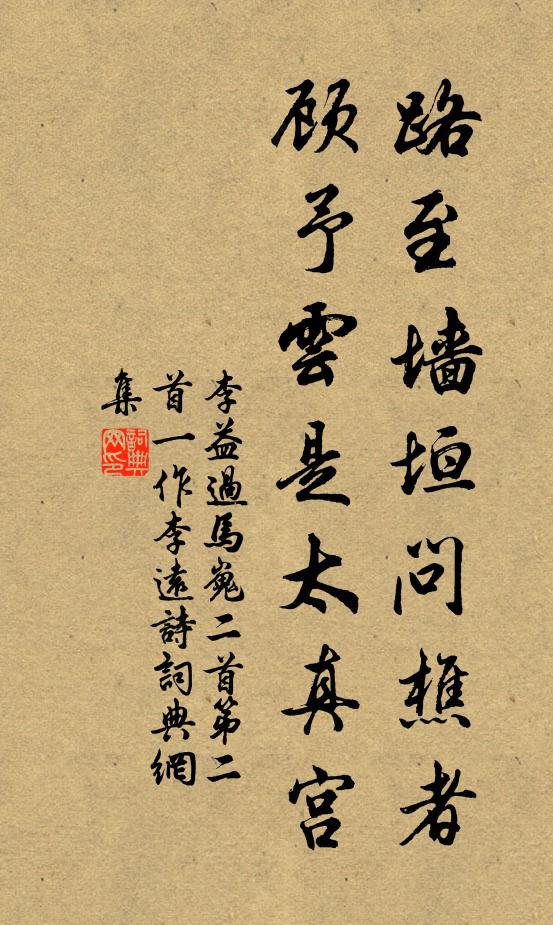 路至墙垣问樵者
顾予雲是太真宫
李益過馬嵬二首第二
首一作李遠詩詞典網
集
詞典
网印